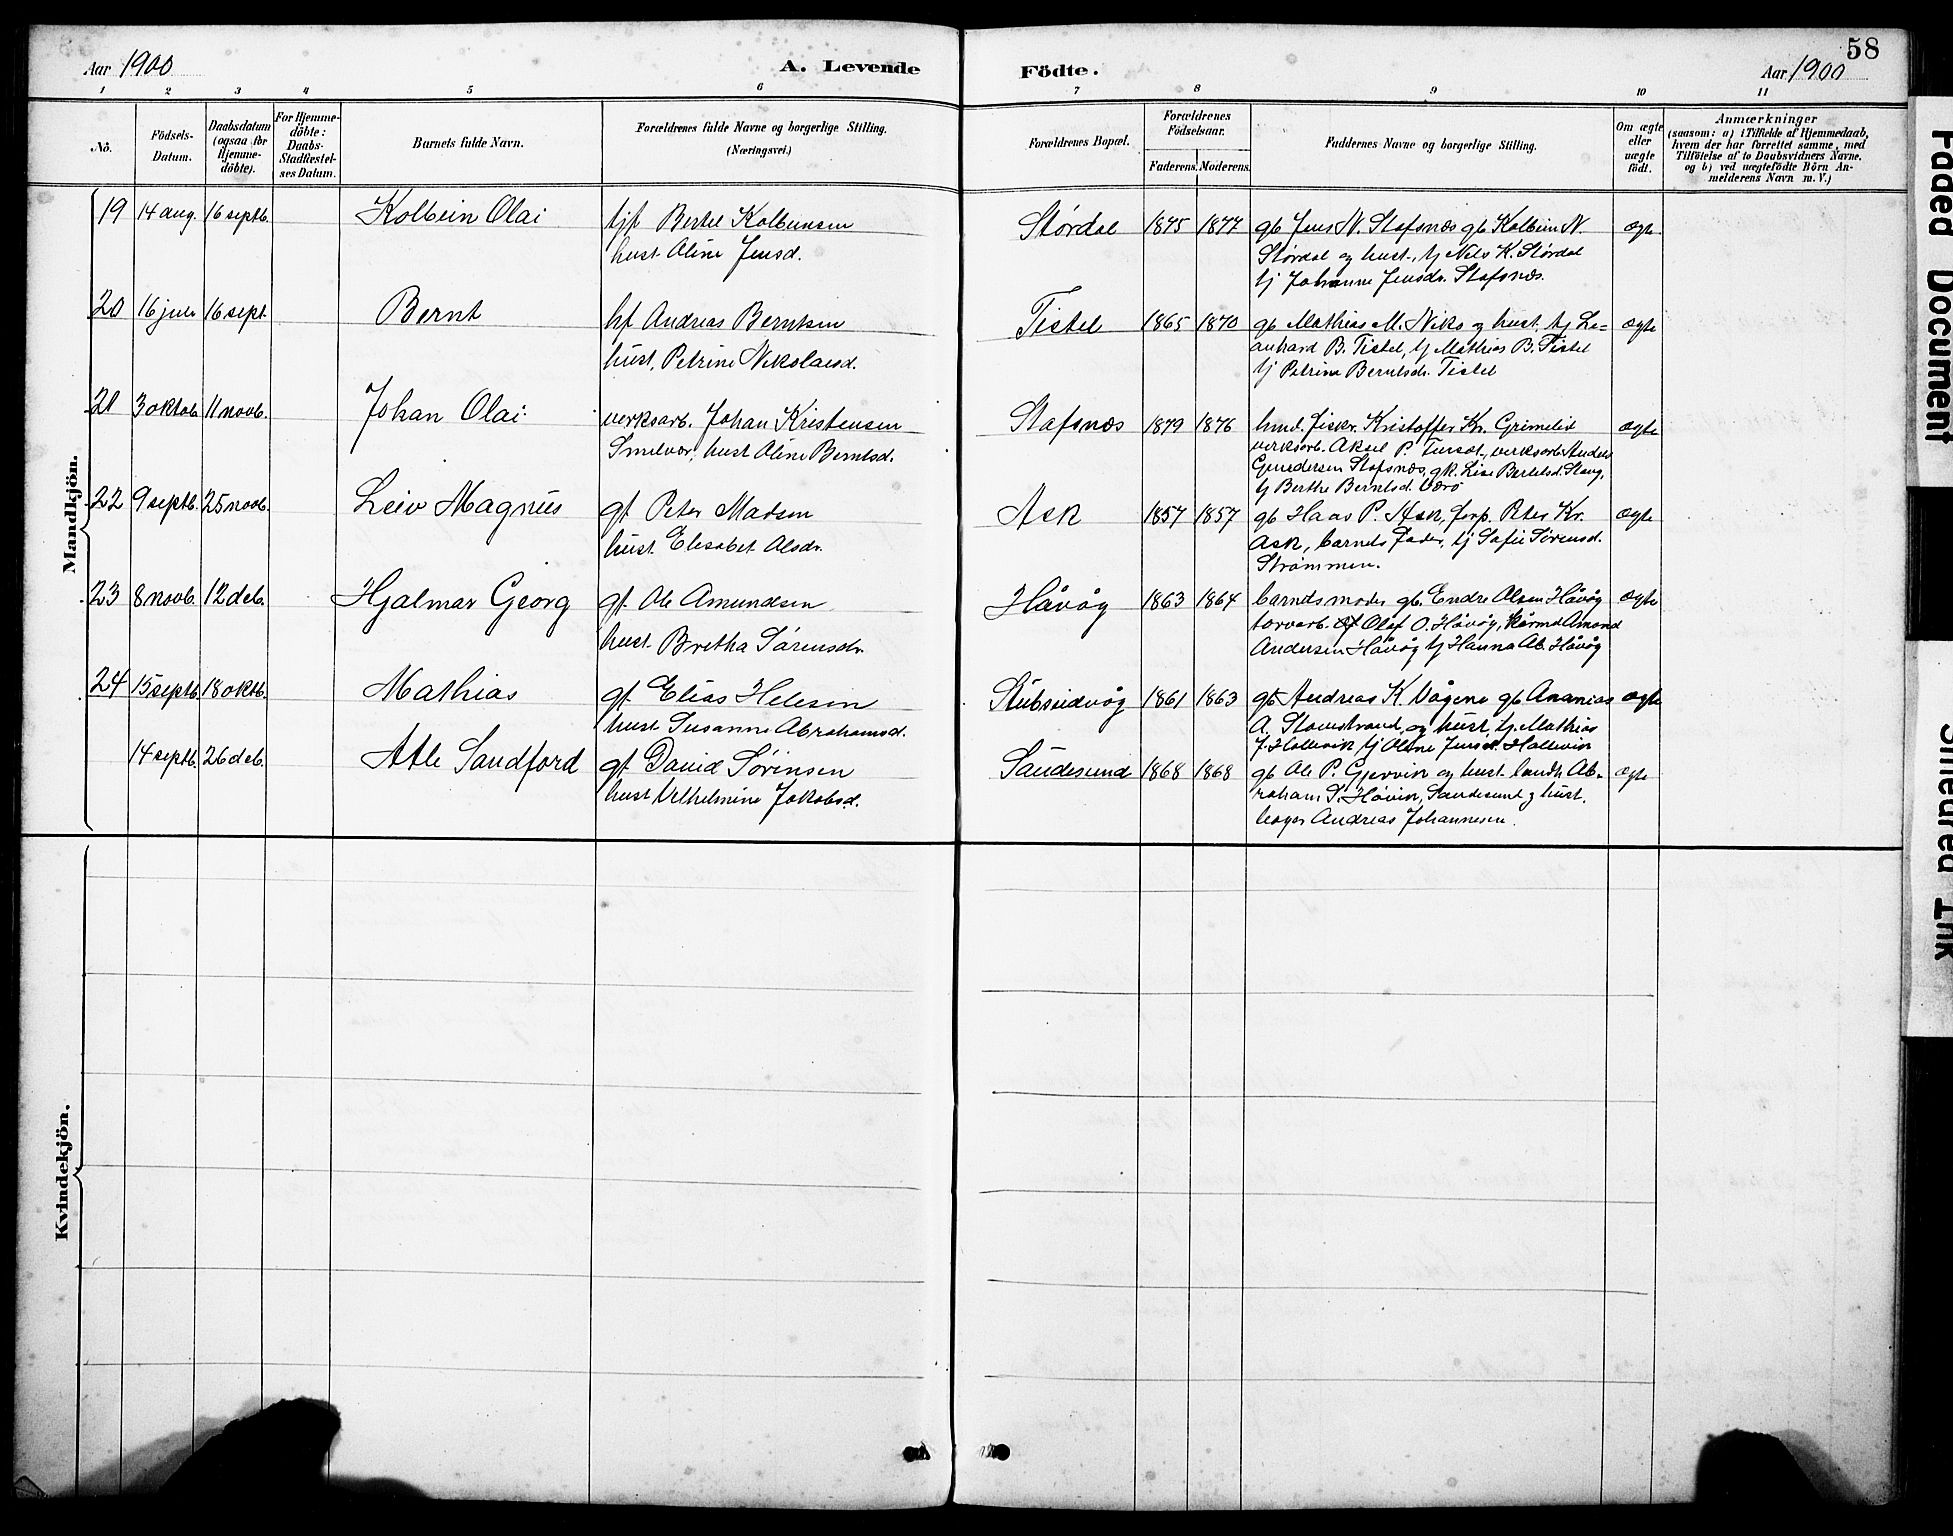 58
Aar 1900
A. Levende
Födte.
Aar 1900
1 2 3 4 5 6 7 8 9 10 11
Nô.
Födsels-Datum.
Daabsdatum (ogsaa for Hjemme-döbte).
For Hjemme-döbte: Daabs-Stadfæstel-ses Datum.
Barnets fulde Navn.
Forældrenes fulde Navne og borgerlige Stilling.
(Næringsvei.)
Forældrenes Bopæl.
Forældrenes Födselsaar.
Faderens. Moderens.
Faddernes Navne og borgerlige Stilling.
Om ægte eller uægte födt.
Anmærkninger
(saasom: a) i Tilfælde af Hjemmedaab,
hvem der har forrettet samme, med
Tilföielse af to Daabsvidners Navne,
og b) ved uægtefödte Börn An-
melderens Navn m. V.)
Mandkjön.
19 14 aug. 16 septb. Kolbein Olai
Bertel Kolbeinsen
hust. Aline Jensd.
Stórdal 1875 1877
gb Jens N. Stafsnæs gb Kolbein N.
Stórdal og hust., tj Nils K. Stórdal
tj Johanne Jensdr. Stafsnæs.
ægte
20 16 juli 16 sept. Bernt
hf Andreas Berntsen
hust. Petrine Nikolaisd.
Tistel 1865 1870
gb Mathias M. Niko og hust. tj Le=
anhard B. Tistel, tj Mathias B. Tistel
tj Petrine Berntsdr. Tistel
ægte
21 3 oktob. 11 novb. Johan Olai
verksarb. Johan Kristensen
Smelvær, hust Aline Berntsd.
Stafsnæs 1879 1876
hmd. fiskr. Kristoffer Kr. Grimelid
verksarb. Aksel P. verksarb. Anders
Stafsnæs, gk. Lise Bertelsd. Stang,
tj Berthe Berntsd. Værö
ægte
22 9 septb. 25 novb. Leiv Magnus
gf Peter Madsen
hust. Elisabet Alsdr.
Ask 1857 1857
gb Haas P. Ask, forp. Peter Kr.
Ask, barnets fader, tj Sofie Sörensd.
Strømmen.
ægte
23 8 novb. 12 deb. Hjalmar Georg
gf. Ole Amundsen
hust. Bretha Sørensdr.
Håvåg 1863 1864
barnets moder gb. Endre Olsen Håvåg
torvarb. Olaf O. Håvåg, Amond
Andersen Håvåg tj Hanna Ab. Håvåg
ægte
24 15 septb. 18 oktb. Mathias
gf. Elias Helesen
hust Susanne Abrahamsd.
Stubseidvåg 1861 1863
gb Andreas K. Vågene gb Ananias
A. Stavestrand, og hust, tj. Mathias
J. Hallevik tj Oline Jensd. Hallevik
ægte
14 septb. 26 deb. Atle Sandford
gf David Sörensen
hust Vilhelmine Jakobsd.
Saudesund 1868 1868
gb Ole P. Gjervik og hust. landh. Ab-
raham S. Høivik, Saudesund og hust.
bager Andreas Johannesen.
ægte
Kvindekjön.
Faded Document
Smeared Ink